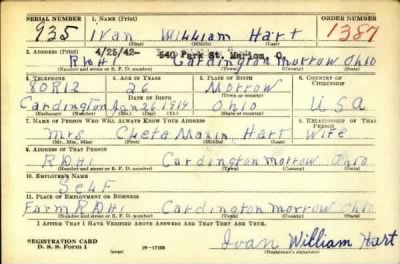 SERIAL NUMBER 1. NAME (Print) ORDER NUMBER
935 Ivan William Hart 1387
(First) (Middle) (Last)
2. ADDRESS (Print) 4/25/42— 540 Park St. Marion, O.
RD#1 Cardington Morrow Ohio
(Number and street or R. F. D. number) (Town) (County) (State)
3. TELEPHONE 4. AGE IN YEARS 5. PLACE OF BIRTH 6. COUNTRY OF CITIZENSHIP
80R12 26 Morrow
DATE OF BIRTH (Town or county)
Cardington Jan 26 1914 Ohio U.S.A
7. NAME OF PERSON WHO WILL ALWAYS KNOW YOUR ADDRESS 8. RELATIONSHIP OF THAT PERSON
Mrs Cheta Hart Wife
(Mr., Mrs., Miss) (First) (Middle) (Last)
9. ADDRESS OF THAT PERSON
RD#1 Cardington Morrow Ohio
(Number and street or R. F. D. number) (Town) (County) (State)
10. EMPLOYER'S NAME
Self
11. PLACE OF EMPLOYMENT OR BUSINESS
Farm RD#1 Cardington Morrow Ohio
(Number and street or R. F. D. number) (Town) (County) (State)
I AFFIRM THAT I HAVE VERIFIED ABOVE ANSWERS AND THAT THEY ARE TRUE.
REGISTRATION CARD
D. S. S. Form 1 16—17105 Ivan William Hart
(Registrant's signature)